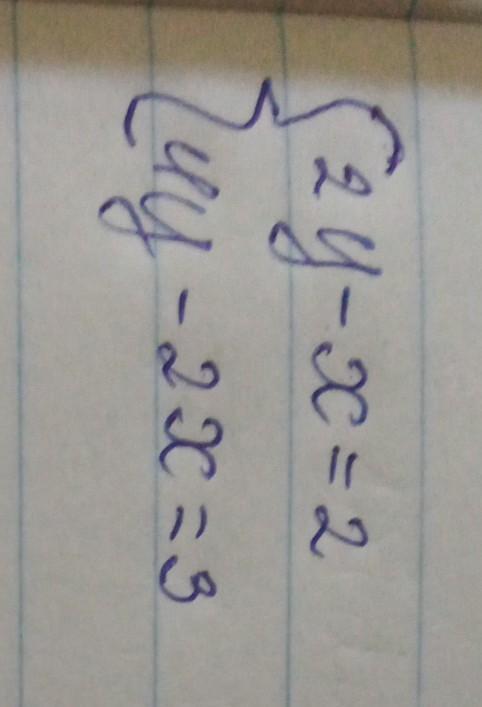 { 2y - x = 2
4y - 2x = 3